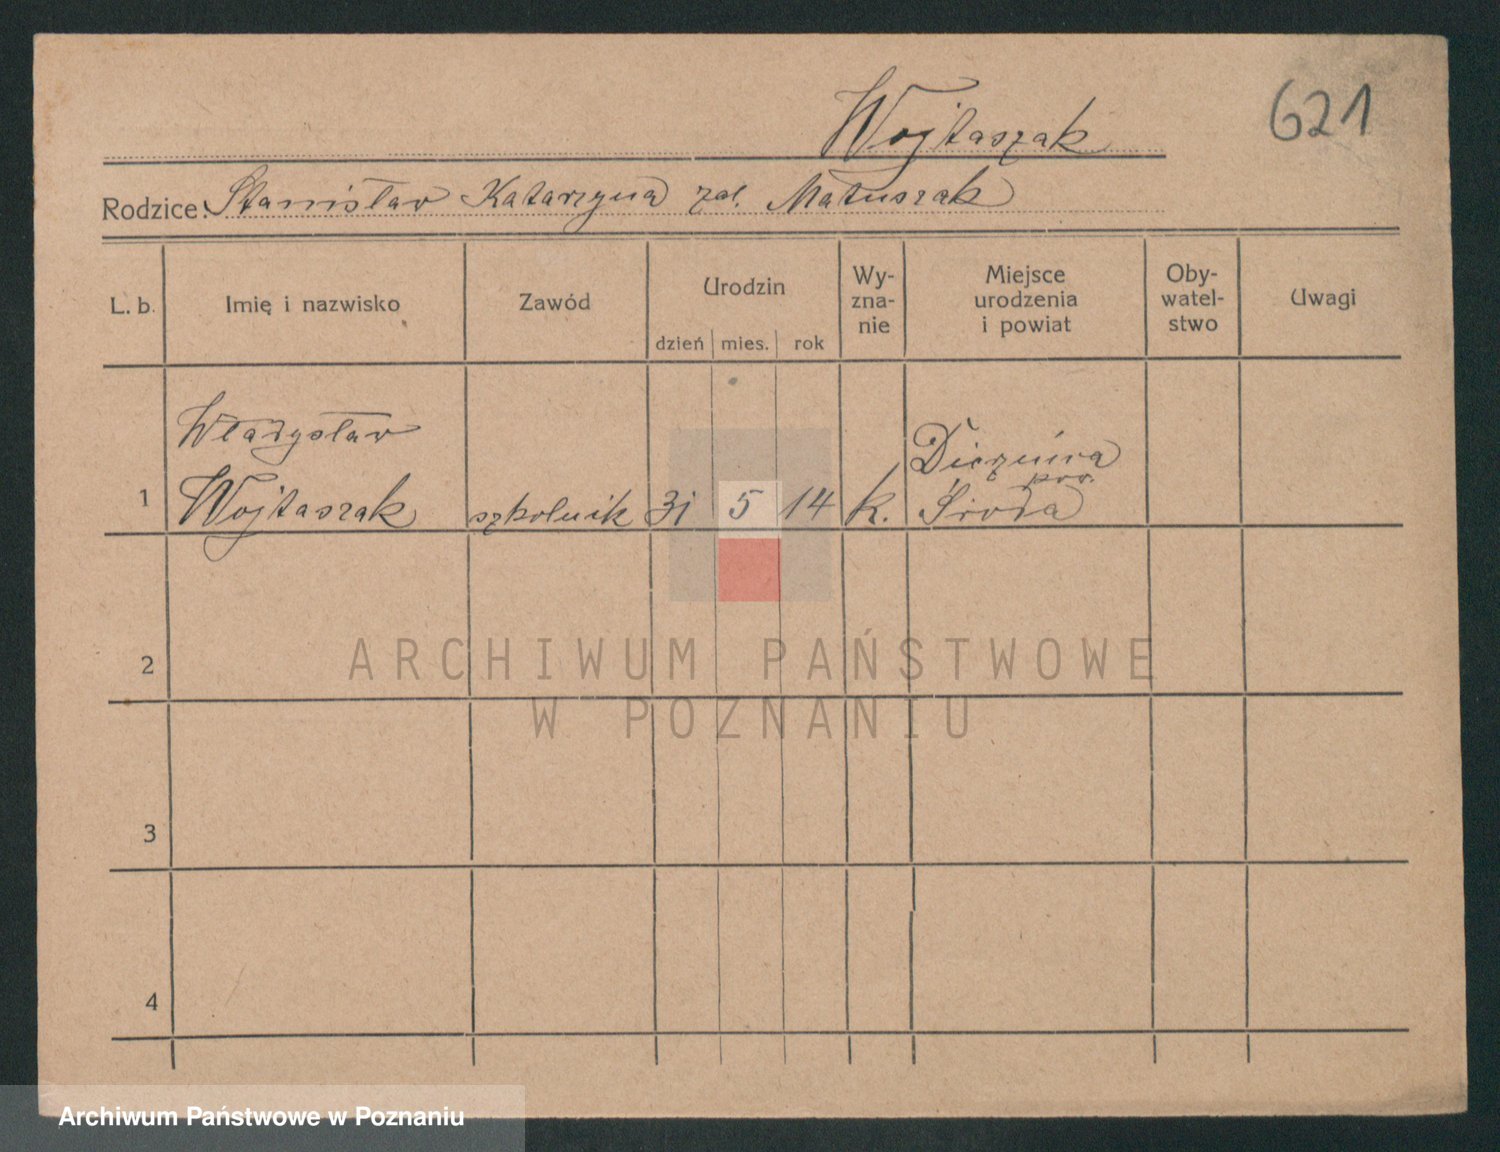 Wojtaszak
621
Rodzice: Stanisław Katarzyna zd. Matuszak
L. b.
Imię i nazwisko
Zawód
Urodzin
dzień
mies.
rok
Wy-
zna-
nie
Miejsce
urodzenia
i powiat
Oby-
watel-
stwo
Uwagi
Władysław
1 Wojtaszak szkolnik 31 5 14 k.
pow.
Środa
2
3
4
ARCHIWUM PAŃSTWOWE
W POZNANIU
Archiwum Państwowe w Poznaniu